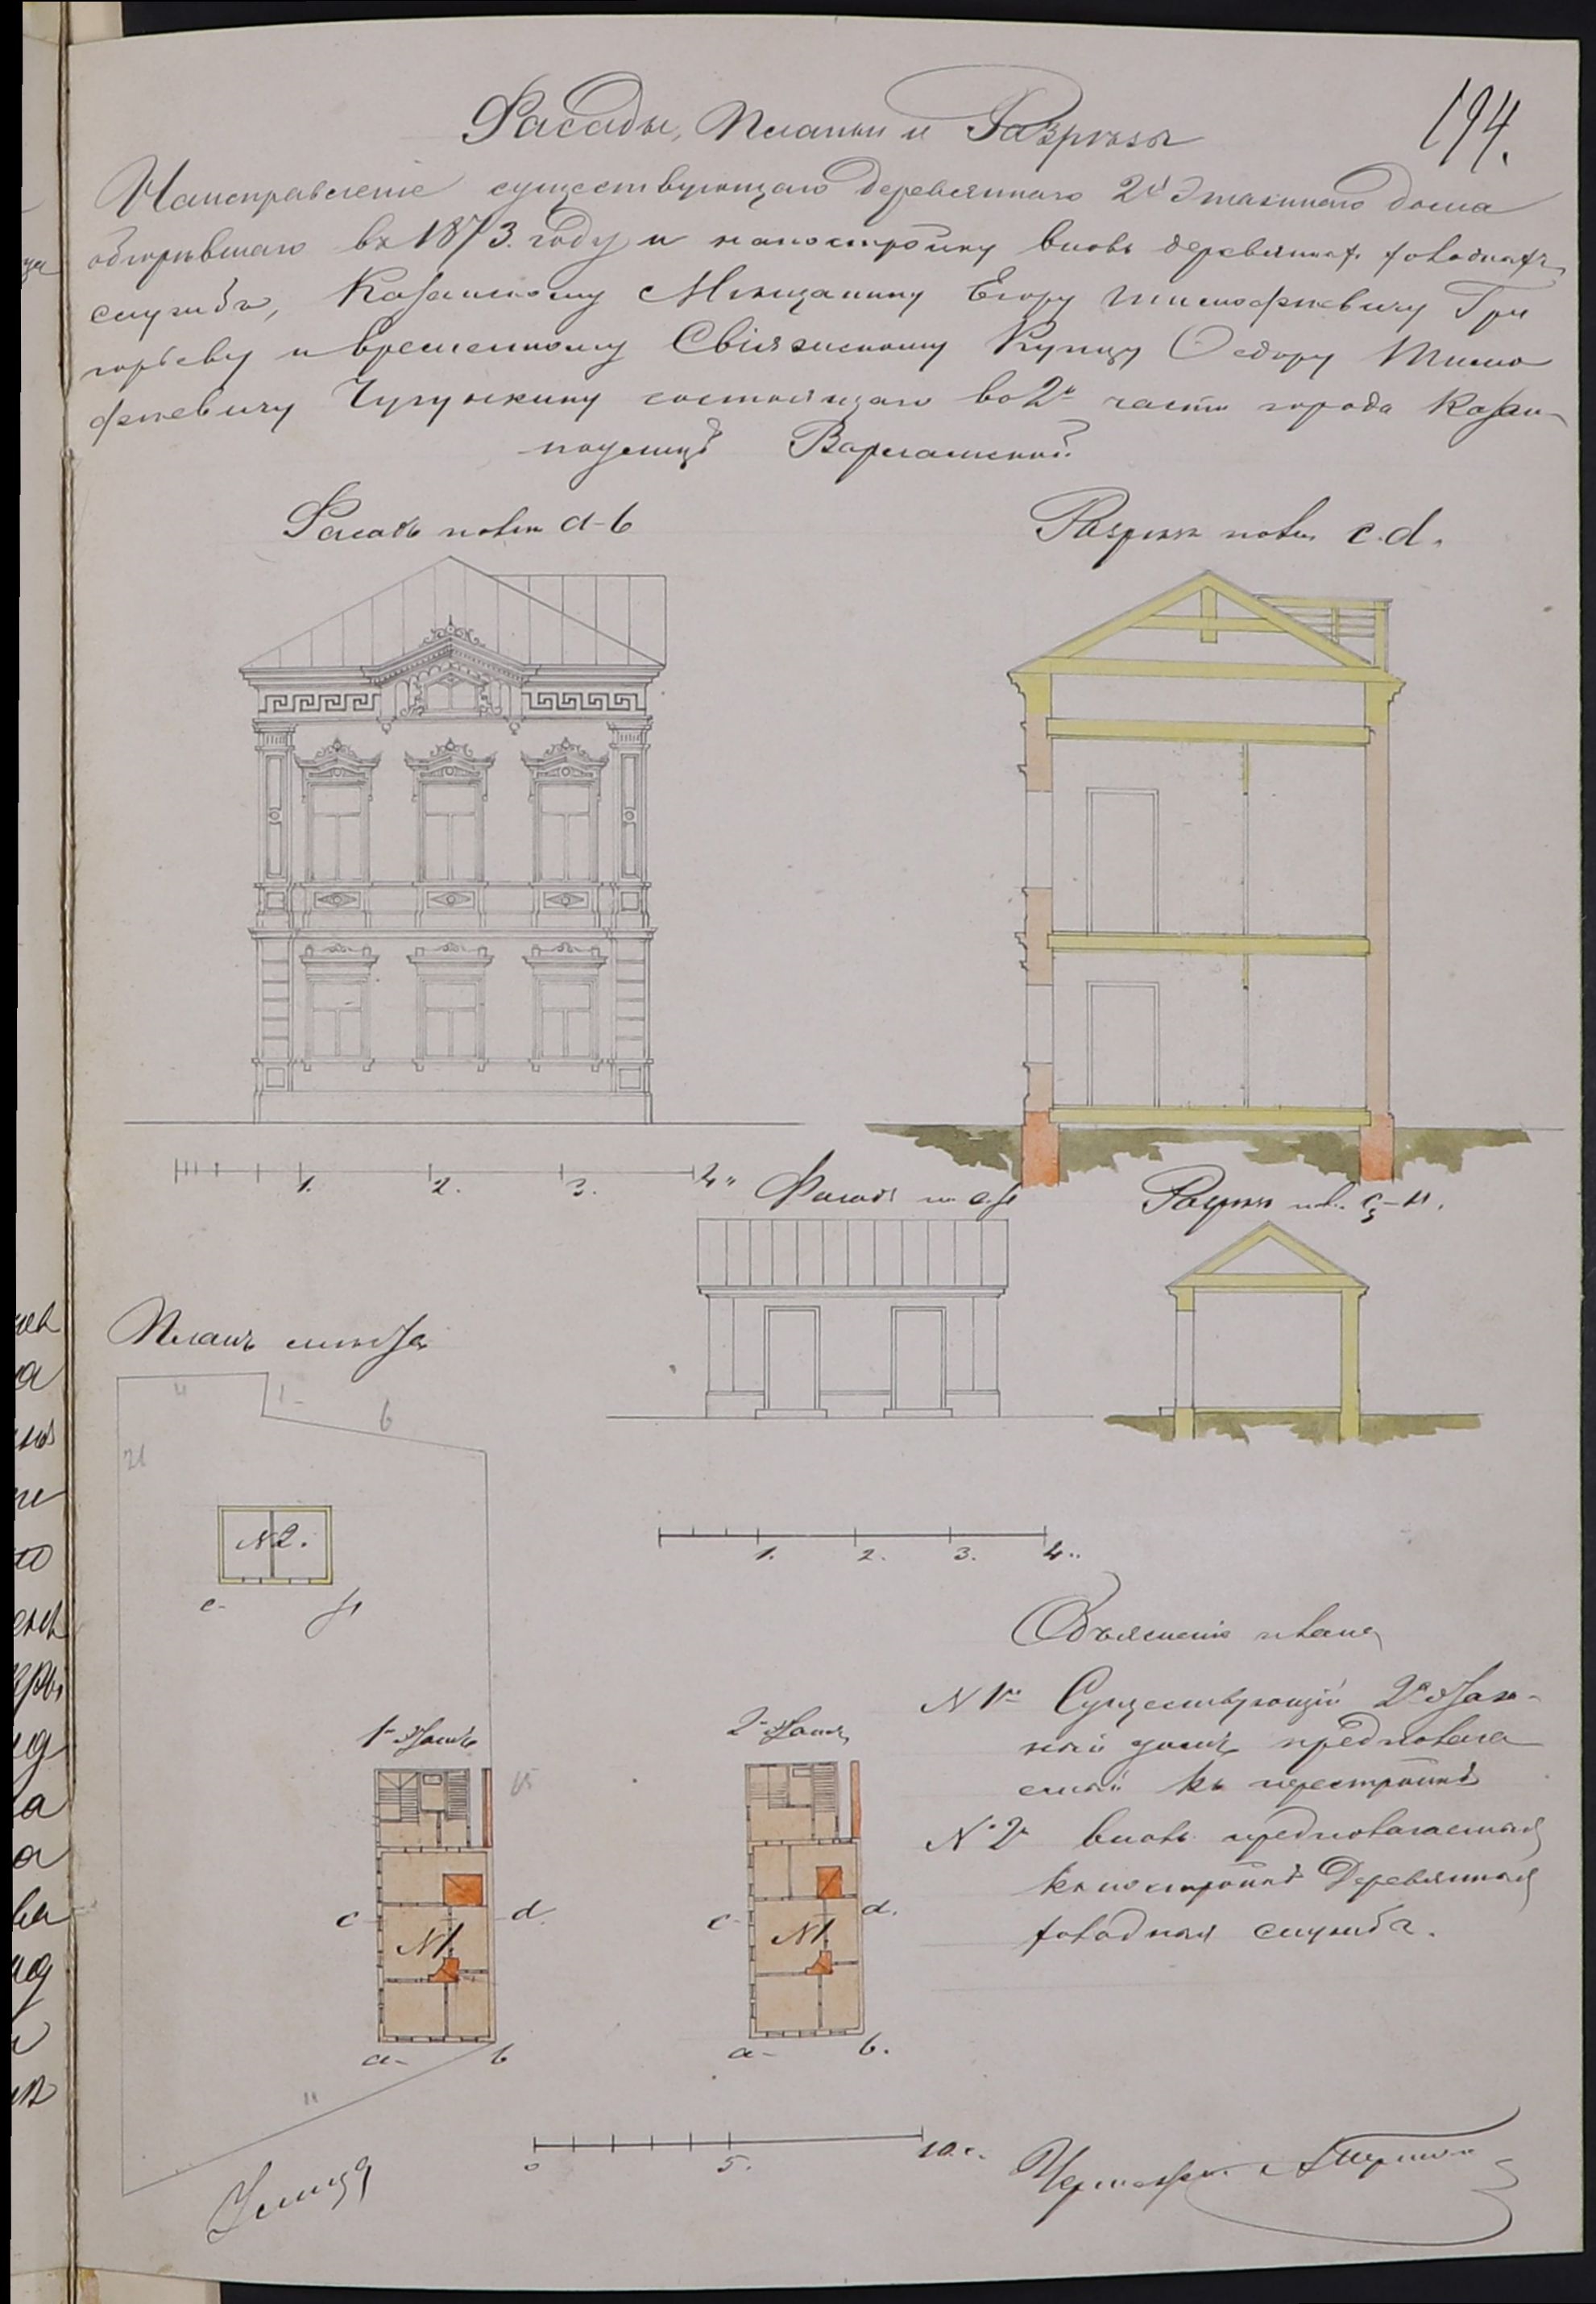 194.
Фасады, Планы и Разрѣзы
Наисправленіе существующаго деревяннаго 2х этажнаго дома
обгорѣвшаго въ 1873. году и напостройку вновь деревянныхъ холодныхъ
службъ, Казанскому Мѣщанину Егору Тимофѣевичу Гри
горьеву и временному Свіяжскому Купцу Ѳедору Тимо
фѣевичу Чугункину состоящаго во 2й части города Казани
поулицѣ Варламской
Фасадъ полин a-b
Разрѣзъ полин. c.d.
1. 2. 3. 4"
Фасадъ по e.f
Разрѣзъ пол.
Планъ мѣста
4 1 6
21
N 2.
e- f
1. 2. 3. 4..
Объясненіе плана
N 1й Существующій 2хэтаж-
ный домъ предполага
емый къ перестройкѣ
N 2й вновь предполагаемая
къпостройкѣ Деревянная
холодная служба.
1й этажъ
2й этажъ
c- N1 d.
c- N1 d.
a- b
a- b.
11
Улица
0 5. 10.с.
Чертилъ